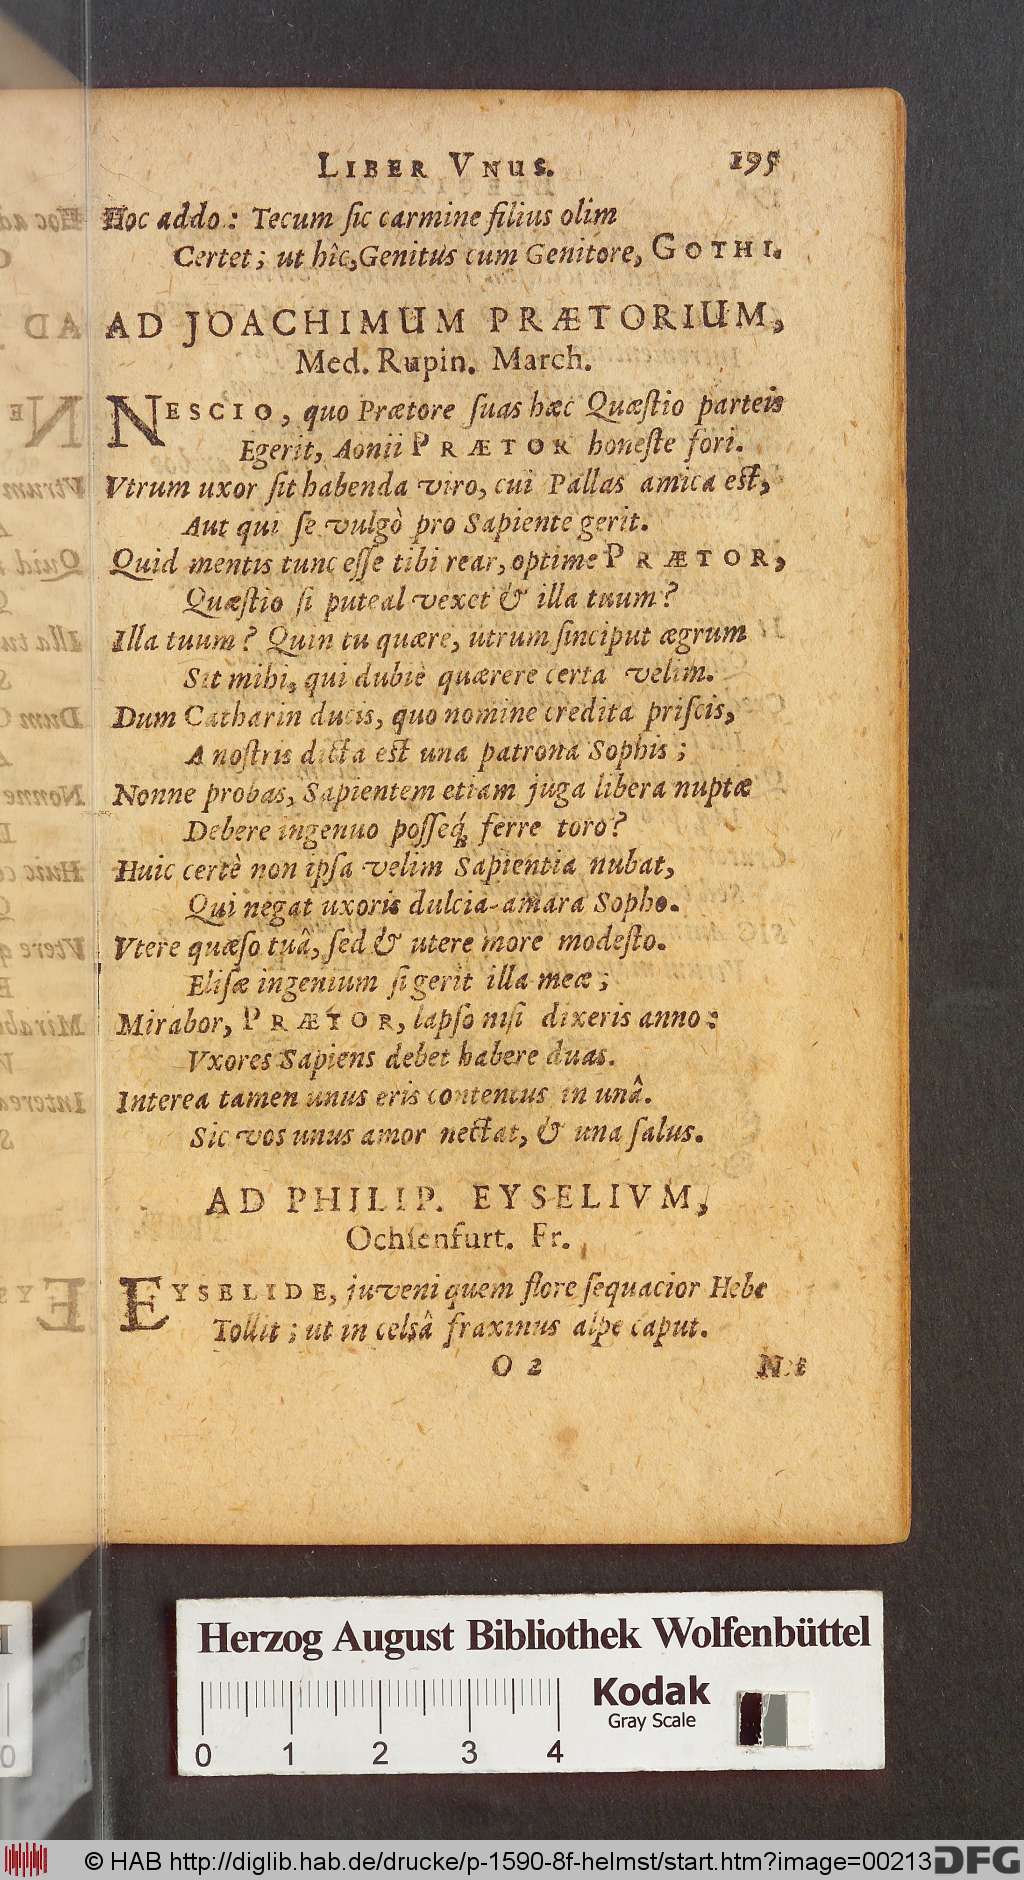 LIBER VNUS. 195
Hoc addo: Tecum ſic carmine filius olim
Certet; ut hîc, Genitus cum Genitore, GOTHI.
AD JOACHIMUM PRÆTORIUM,
Med. Rupin. March.
NESCIO, quo Prætore ſuas hæc Quæſtio parteis
Egerit, Aonii PRÆTOR honeſte fori.
Vtrum uxor ſit habenda viro, cui Pallas amica eſt,
Aut qui ſe vulgò pro Sapiente gerit.
Quid mentis tunc eſſe tibi rear, optime PRÆTOR,
Quæſtio ſi puteal vexet & illa tuum?
Illa tuum? Quin tu quære, utrum ſinciput ægrum
Sit mihi, qui dubiè quærere certa velim.
Dum Catharin ducis, quo nomine credita priſcis,
A noſtris dicta eſt una patrona Sophis;
Nonne probas, Sapientem etiam juga libera nuptæ
Debere ingenuo poſſeq́; ferre toro?
Huic certè non ipſa velim Sapientia nubat,
Qui negat uxoris dulcia-amara Sopho.
Vtere quæſo tuâ, ſed & utere more modeſto.
Eliſæ ingenium ſi gerit illa meæ;
Mirabor, PRÆTOR, lapſo niſi dixeris anno:
Vxores Sapiens debet habere duas.
Interea tamen unus eris contentus in unâ.
Sic vos unus amor nectat, & una ſalus.
AD PHILIP. EYSELIVM,
Ochſenfurt. Fr.
EYSELIDE, juveni quem flore ſequacior Hebe
Tollit; ut in celsâ fraxinus alpe caput.
O 2
Herzog August Bibliothek Wolfenbüttel
Kodak
Gray Scale
0 1 2 3 4
© HAB http://diglib.hab.de/drucke/p-1590-8f-helmst/start.htm?image=00213
DFG